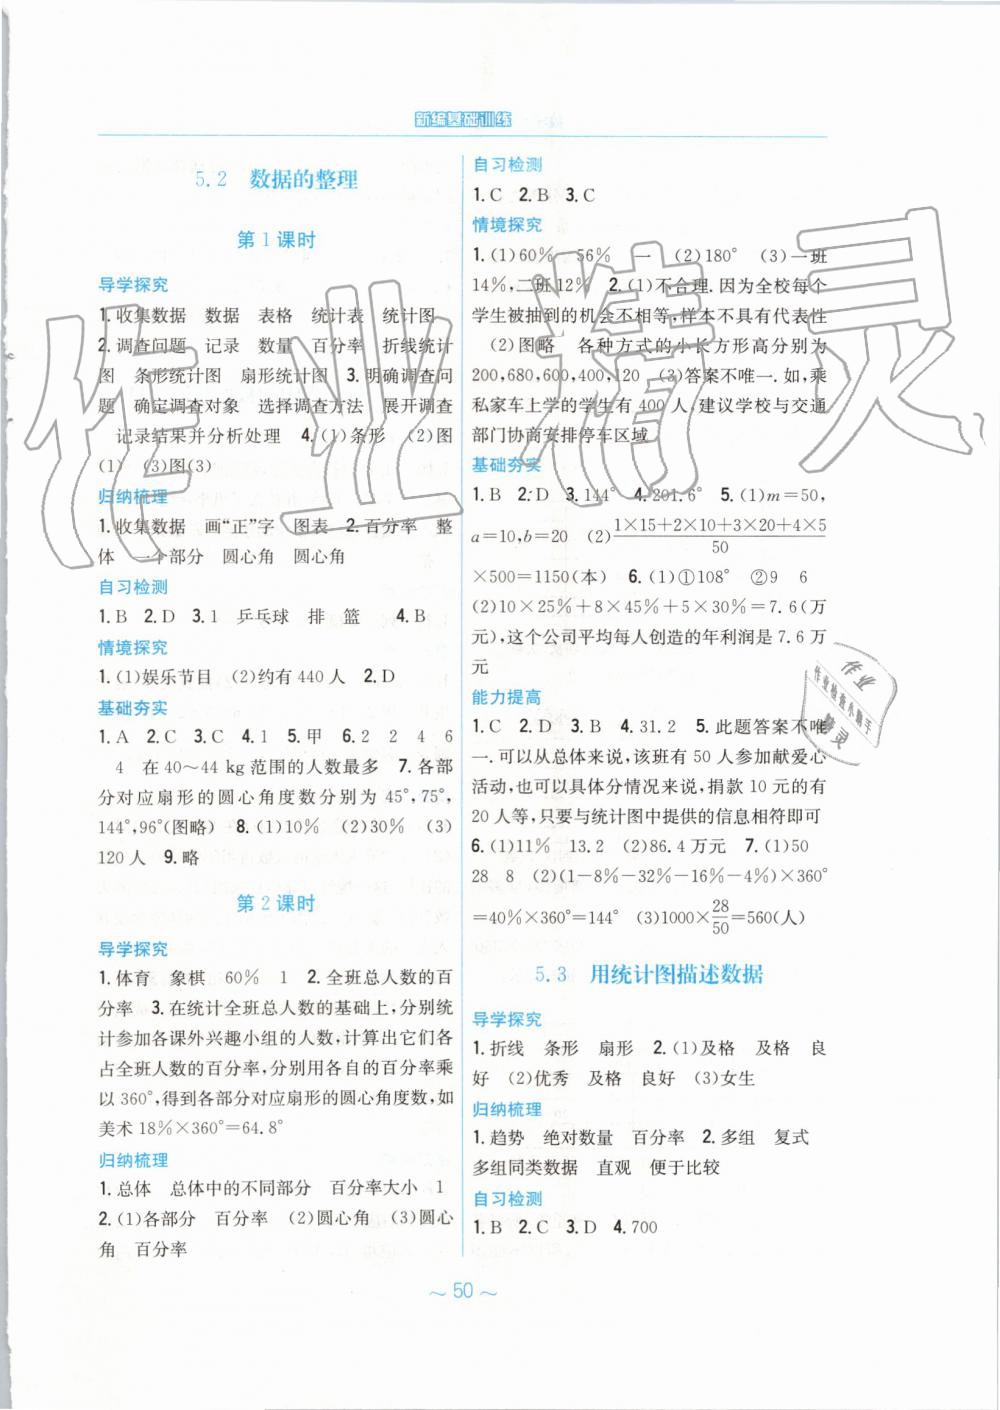 新编基础训练
5.2 数据的整理
第1课时
导学探究
1.收集数据 数据 表格 统计表 统计图
2.调查问题 记录 数量 百分率 折线统计
图 条形统计图 扇形统计图 3.明确调查问
题 确定调查对象 选择调查方法 展开调查
记录结果并分析处理 4.(1)条形 (2)图
(1) (3)图(3)
归纳梳理
1.收集数据 画“正”字 图表 2.百分率 整
体 一个部分 圆心角 圆心角
自习检测
1.B 2.D 3.1 乒乓球 排 篮 4.B
情境探究
1.(1)娱乐节目 (2)约有440人 2.D
基础夯实
1.A 2.C 3.C 4.1 5.甲 6.2 2 4 6
4 在40～44 kg范围的人数最多 7.各部
分对应扇形的圆心角度数分别为45°,75°,
144°,96°(图略) 8.(1)10% (2)30% (3)
120人 9.略
第2课时
导学探究
1.体育 象棋 60% 1 2.全班总人数的百
分率 3.在统计全班总人数的基础上,分别统
计参加各课外兴趣小组的人数,计算出它们各
占全班人数的百分率,分别用各自的百分率乘
以360°,得到各部分对应扇形的圆心角度数,如
美术18%×360°=64.8°
归纳梳理
1.总体 总体中的不同部分 百分率大小 1
2.(1)各部分 百分率 (2)圆心角 (3)圆心
角 百分率
自习检测
1.C 2.B 3.C
情境探究
1.(1)60% 56% 一 (2)180° (3)一班
14%,二班12% 2.(1)不合理.因为全校每个
学生被抽到的机会不相等,样本不具有代表性
(2)图略 各种方式的小长方形高分别为
200,680,600,400,120 (3)答案不唯一.如,乘
私家车上学的学生有400人,建议学校与交通
部门协商安排停车区域
基础夯实
1.B 2.D 3.144° 4.201.6° 5.(1)m=50,
a=10,b=20 (2)\frac{1×15+2×10+3×20+4×5}{50}
×500=1150(本) 6.(1)①108° ②9 6
(2)10×25%+8×45%+5×30%=7.6(万
元),这个公司平均每人创造的年利润是7.6万
元
能力提高
1.C 2.D 3.B 4.31.2 5.此题答案不唯
一.可以从总体来说,该班有50人参加献爱心
活动,也可以具体分情况来说,捐款10元的有
20人等,只要与统计图中提供的信息相符即可
6.(1)11% 13.2 (2)86.4万元 7.(1)50
28 8 (2)(1-8%-32%-16%-4%)×360°
=40%×360°=144° (3)1000×\frac{28}{50}=560(人)
5.3 用统计图描述数据
导学探究
1.折线 条形 扇形 2.(1)及格 及格 良
好 (2)优秀 及格 良好 (3)女生
归纳梳理
1.趋势 绝对数量 百分率 2.多组 复式
多组同类数据 直观 便于比较
自习检测
1.B 2.C 3.D 4.700
～50～
作业精灵
作业
作业检查小助手
精灵